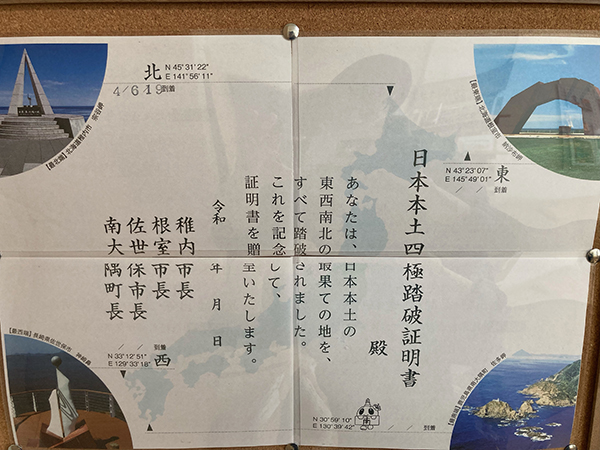 北
N 45°31′22″
E 141°56′11″
4/6 19 到着
【最北端】北海道稚内市 宗谷岬
【最東端】北海道根室市 納沙布岬
N 43°23′07″
E 145°49′01″
東
/ / 到着
日本本土四極踏破証明書
殿
あなたは、日本本土の
東西南北の最果ての地を、
すべて踏破されました。
これを記念して、
証明書を贈呈いたします。
令和 年 月 日
稚内市長
根室市長
佐世保市長
南大隅町長
【最西端】長崎県佐世保市 神崎鼻
/ / 到着
N 33°12′51″
E 129°33′18″
西
N 30°59′10″
E 130°39′42″
/ / 到着
【最南端】鹿児島県南大隅町 佐多岬